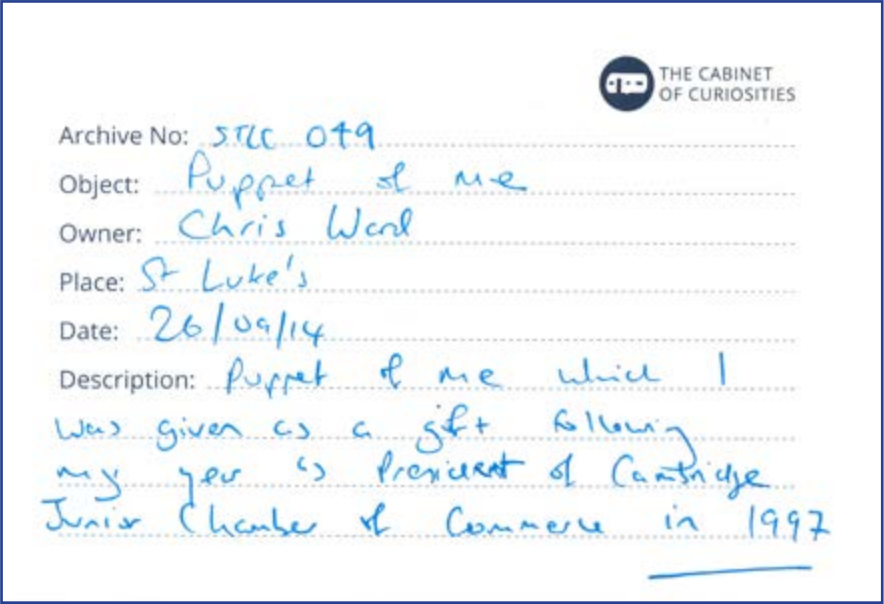 THE CABINET
OF CURIOSITIES
Archive No: STLC 049
Object: Puppet of me
Owner: Chris Ward
Place: St Luke's
Date: 26/09/14
Description: Puppet of me which I
was given as a gift following
my year as President of Cambridge
Junior Chamber of Commerce in 1997